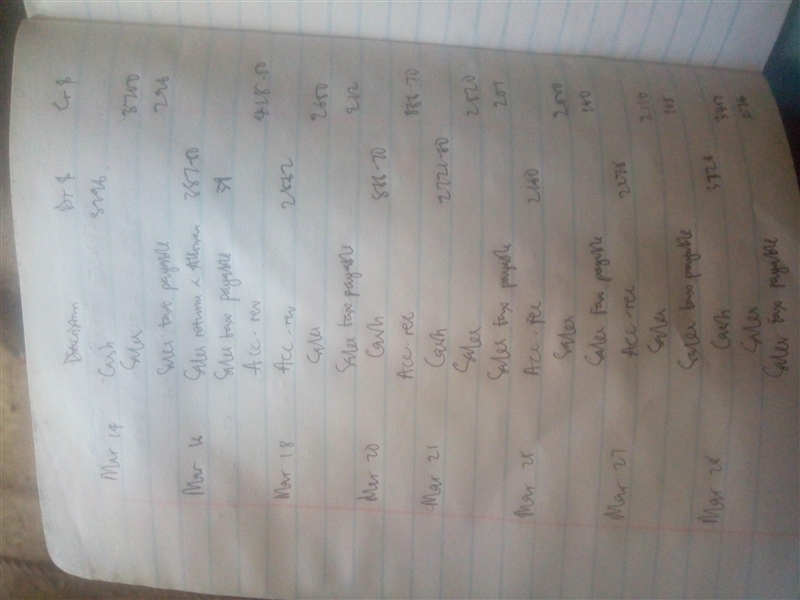 Description Dr $ Cr $
Mar 14 Cash 3996
Sales 3700
Sales tax payable 296
Mar 16 Sales return & Allowan 387-00
Sales tax payable 31
Acc-rev
Mar 18 Acc-rev 2862
Sales 2650
Sales tax payable 212
Mar 20 Cash 888-70
Acc-rec 888-70
Mar 21 Cash 2721-80
Sales 2520
Sales tax payable 201
Mar 25 Acc-rec 2160
Sales 2000
Sales tax payable 160
Mar 27 Acc-rec 2278
Sales 2110
Sales tax payable 168
Mar 28 Cash
Sales
Sales tax payable